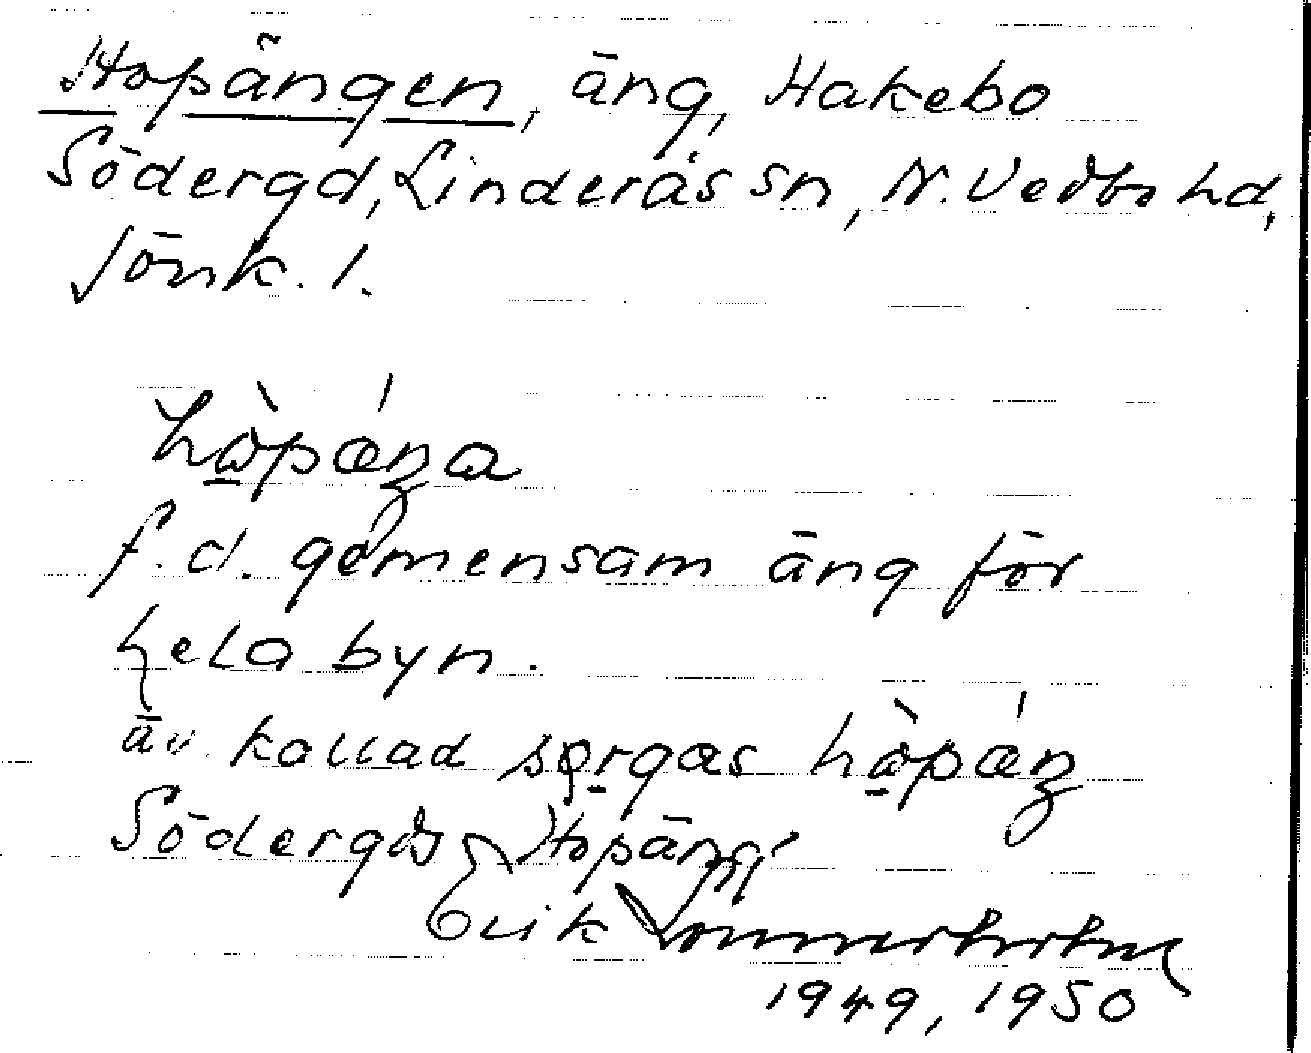 Hopängen, äng, Hakebo
Södergd, Linderås sn, N. Vedbo hd,
Jönk. l.
hòpǽŋa
f.d. gemensam äng för
hela byn.
äv. kallad hòpǽŋ
Södergds Hopäng
Erik Sommerholm
1949, 1950